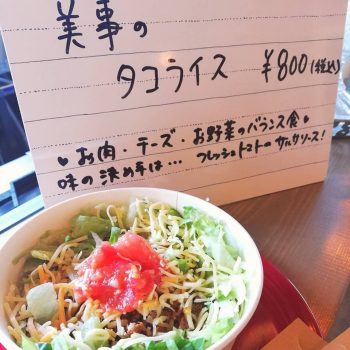 美事の
タコライス ¥800(税込)
♥お肉・チーズ・お野菜のバランス食♥
味の決め手は… フレッシュトマトのサルサソース!